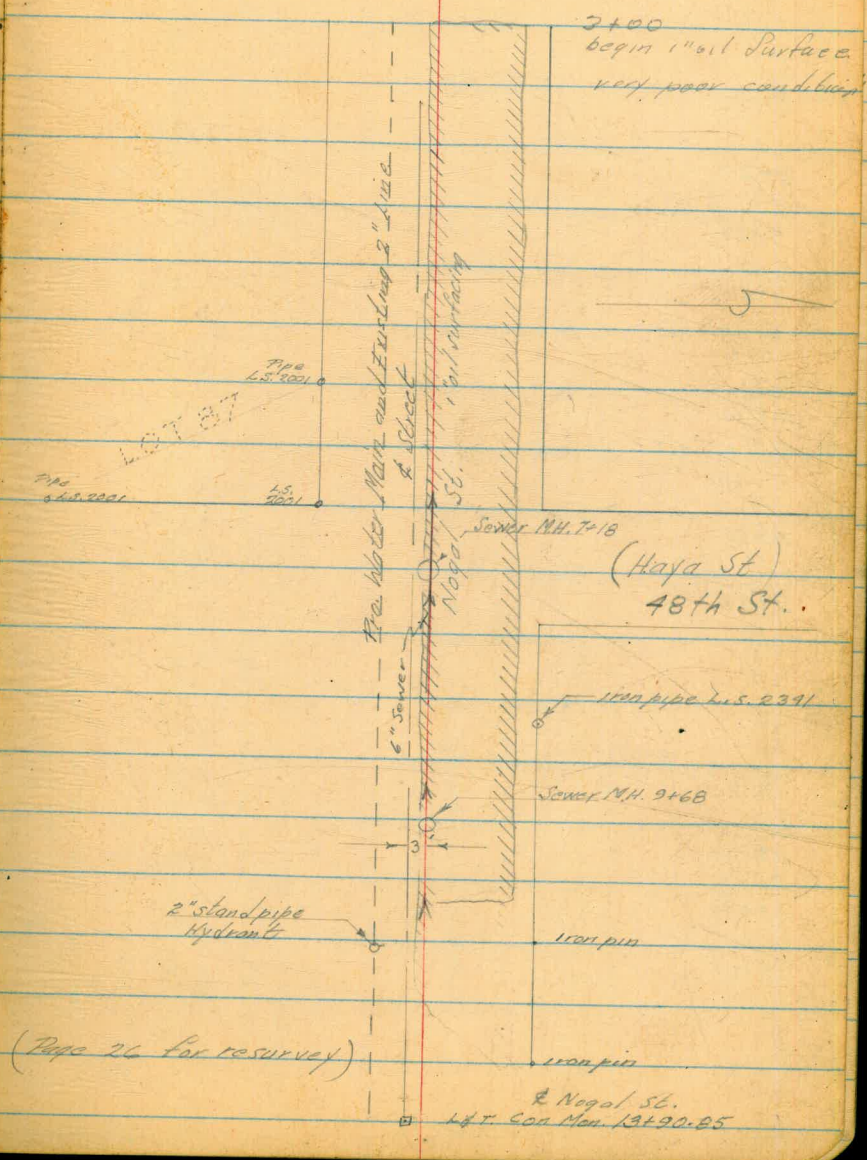 3+00
begin 1" oil Surface
very poor condition
Pro. Water Main and Existing 2" Line
1" oil surfacing
℄ Street
Pipe
L.S. 2001
LOT 87
Pipe
L.S. 2001
L.S.
2001
Nogal St.
Sewer M.H. 7+18
(Haya St)
48th St.
6" Sewer
Iron pipe L.S. 2391
Sewer M.H. 9+68
3
2" stand pipe
Hydrant
Iron pin
(Page 26 for resurvey)
Iron pin
℄ Nogal St.
L&T. Con Mon. 13+90.85